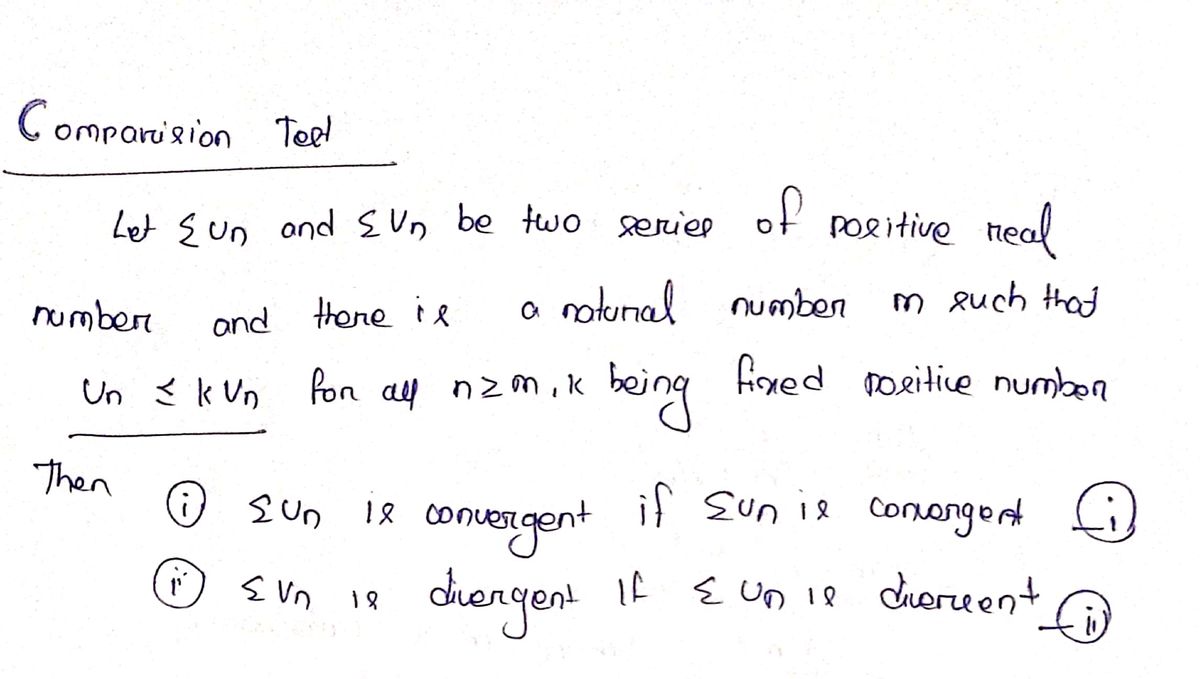 Comparision Test
Let Σ Un and Σ Vn be two series of positive real
number and there is a natural number m such that
Un ≤ k Vn for all n ≥ m, k being fixed positive number
Then (i) Σ Un is convergent if Σ Un is convergent (i)
(ii) Σ Vn is divergent if Σ Un is divergent (ii)